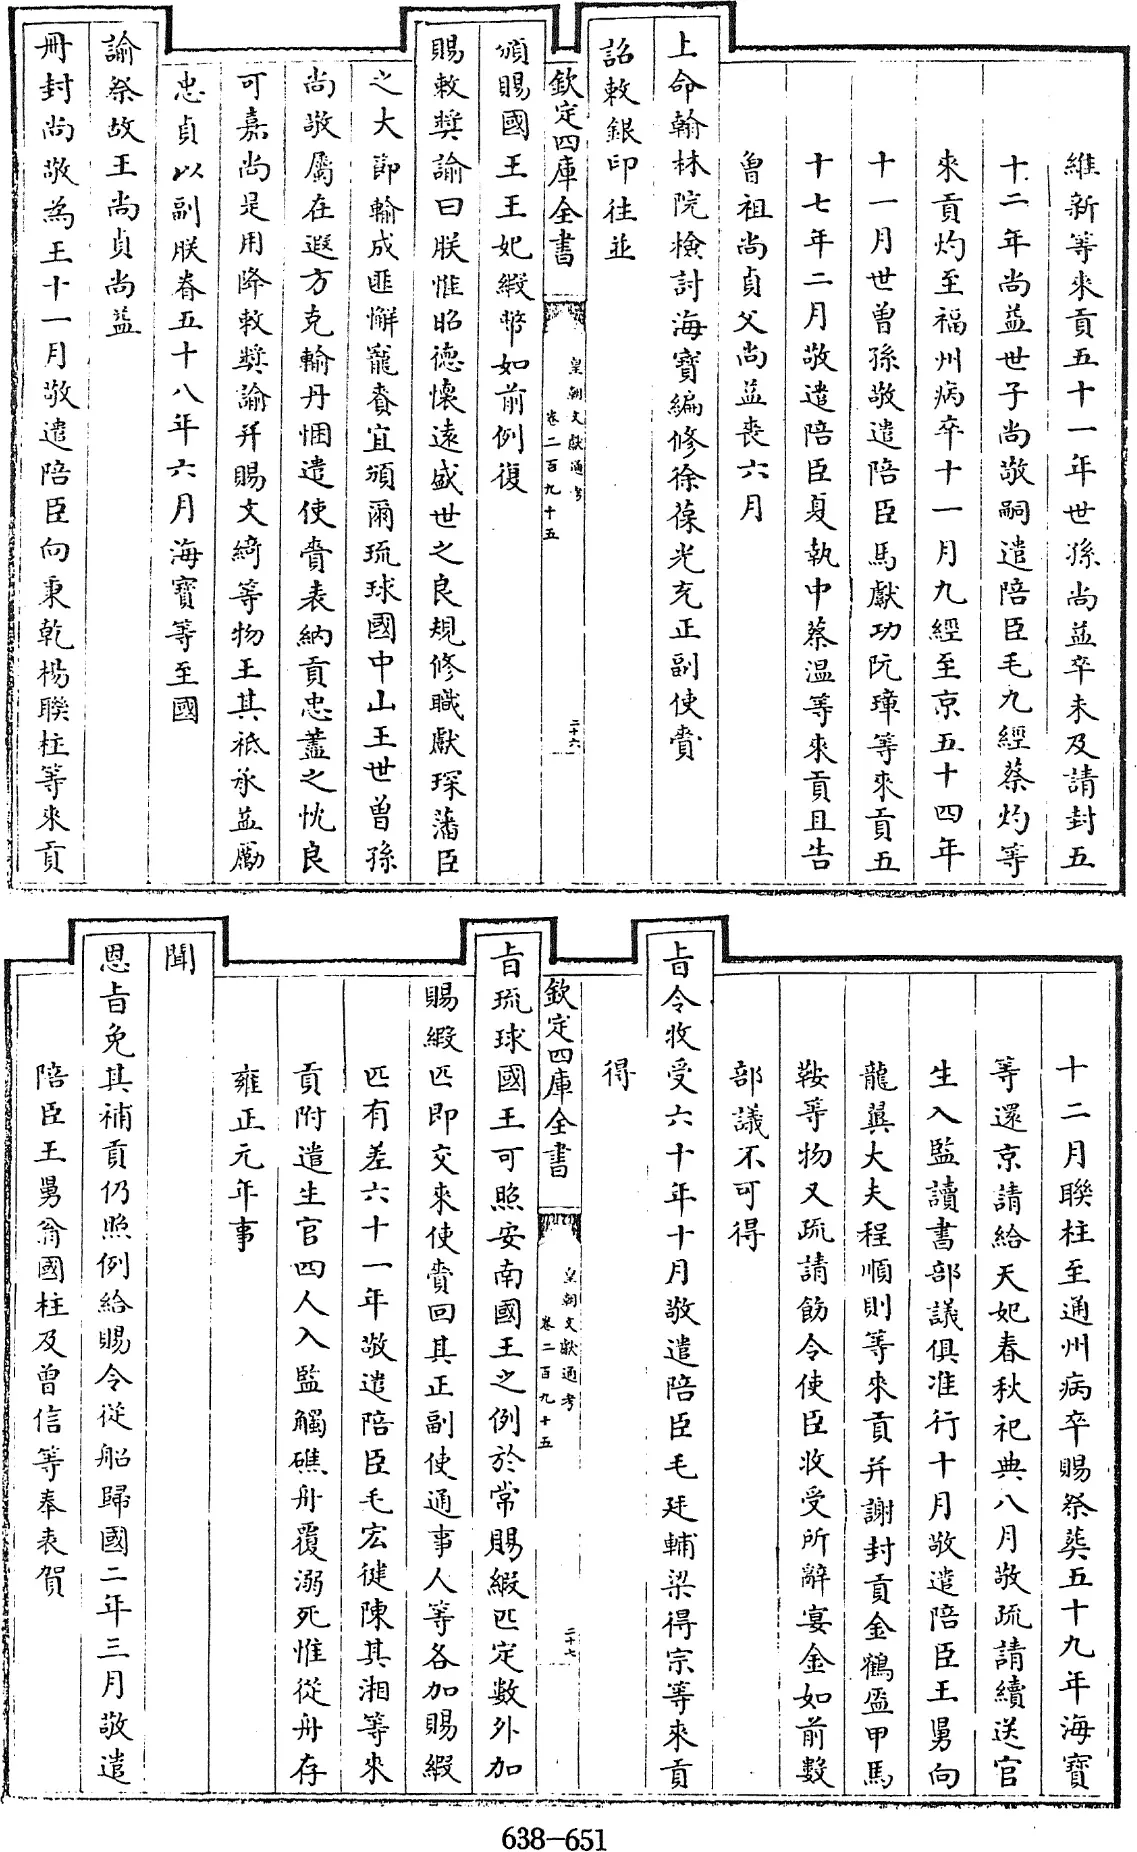 維新等來貢五十一年世孫尚益卒未及請封五
十二年尚益世子尚敬嗣遣陪臣毛九經蔡灼等
來貢灼至福州病卒十一月九經至京五十四年
十一月世曽孫敬遣陪臣馬獻功阮璋等來貢五
十七年二月敬遣陪臣夏執中蔡温等來貢且告
曽祖尚貞父尚益喪六月
上命翰林院檢討海寳編修徐葆光充正副使賫
詔敕銀印往並
欽定四庫全書
皇朝文獻通考
卷二百九十五
二十六
頒賜國王王妃緞幣如前例復
賜敕奬諭曰朕惟昭德懷遠盛世之良規修職獻琛藩臣
之大節輸成匪懈寵賚宜頒爾琉球國中山王世曽孫
尚敬屬在遐方克輸丹悃遣使賫表納貢忠藎之忱良
可嘉尚是用降敕奬諭并賜文綺等物王其祗承益勵
忠貞以副朕眷五十八年六月海寳等至國
諭祭故王尚貞尚益
冊封尚敬為王十一月敬遣陪臣向秉乾楊聨柱等來貢
十二月聨柱至通州病卒賜祭葬五十九年海寳
等還京請給天妃春秋祀典八月敬疏請續送官
生入監讀書部議俱准行十月敬遣陪臣王男向
龍翼大夫程順則等來貢并謝封貢金鶴盔甲馬
鞍等物又疏請飭令使臣收受所辭宴金如前數
部議不可得
旨令收受六十年十月敬遣陪臣毛廷輔梁得宗等來貢
得
欽定四庫全書
皇朝文獻通考
卷二百九十五
二十七
旨琉球國王可照安南國王之例於常賜緞匹定數外加
賜緞匹即交來使賫回其正副使通事人等各加賜緞
匹有差六十一年敬遣陪臣毛宏健陳其湘等來
貢附遣生官四人入監觸礁舟覆溺死惟從舟存
雍正元年事
聞
恩旨免其補貢仍照例給賜令從船歸國二年三月敬遣
陪臣王舅翁國柱及曽信等奉表賀
638-651